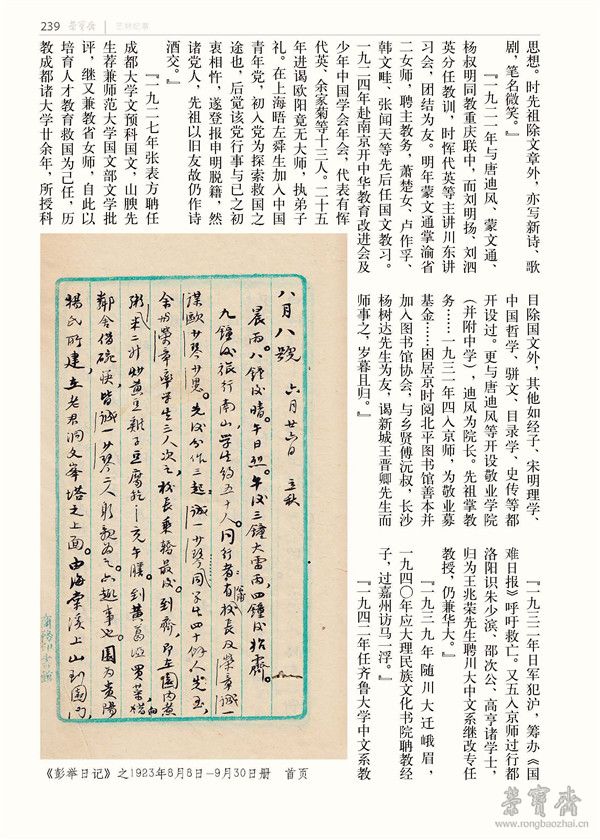 239 荣宝斋 | 艺林纪事
思想。时先祖除文章外，亦写新诗、歌
剧，笔名微笑。』
『一九二一年与唐迪风、蒙文通、
杨叔明同教重庆联中，而刘明扬、刘泗
英分任教训，时恽代英等主讲川东讲
习会，团结为友。明年蒙文通掌渝省
二女师，聘主教务，萧楚女、卢作孚、
韩文畦、张闻天等先后任国文教习。
一九二四年赴南京开中华教育改进会及
少年中国学会年会，代表有恽
代英、余家菊等十三人。二十五
年进谒欧阳竟无大师，执弟子
礼。在上海晤左舜生加入中国
青年党，初入党为探索救国之
途也，后觉该党行事与已之初
衷相忤，遂登报申明脱籍，然
诸党人，先祖以旧友故仍作诗
酒交。』
『一九二七年张表方聘任
成都大学文预科国文，山腴先
生荐兼师范大学国文部文学批
评，继又兼教省女师，自此以
培育人才教育救国为己任，历
教成都诸大学廿余年，所授科
目除国文外，其他如经子、宋明理学、
中国哲学、骈文、目录学、史传等都
开设过。更与唐迪风等开设敬业学院
（并附中学），迪风为院长。先祖掌教
务……一九三一年四入京师，为敬业募
基金……困居京时阅北平图书馆善本并
加入图书馆协会，与乡贤傅沅叔，长沙
杨树达先生为友，谒新城王晋卿先生而
师事之，岁暮且归。』
『一九三二年日军犯沪，筹办《国
难日报》呼吁救亡。又五入京师过行都
洛阳识朱少滨、邵次公、高亨诸学士，
归为王兆荣先生聘川大中文系继改专任
教授，仍兼华大。』
『一九三九年随川大迁峨眉，
一九四〇年应大理民族文化书院聘教经
子，过嘉州访马一浮。』
『一九四二年任齐鲁大学中文系教
八月八號 六月廿六日 立秋
晨雨。八鐘後晴。午日烈。午後三鐘大雷雨，四鐘後始霽。
九鐘後旅行南山，学生约五十人。同行者有校長及榮章誠一
少琴少男。先後分作三起，誠一少琴同学生四十餘人先至，
余与榮章率学生三人次之，校長乘轎最後。到齊，即在園内煮
粥。米二升炒黄豆雞子豆腐干充午膳。到黄葛埡買菜，向
鄰舍借碗筷，皆誠一少琴二人躬親为之，亦趣事也。園为貴陽
楊氏所建，在老君洞文峯塔之上面。由海棠溪上山到園門，
《彭举日记》之1923年8月8日—9月30日册 首页
荣宝斋
www.rongbaozhai.cn